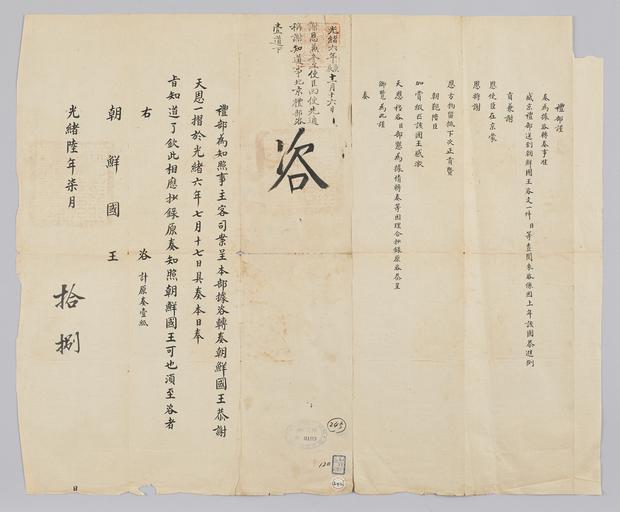 禮部謹
奏為據咨轉奏事准
盛京禮部送到朝鮮國王咨文一件
貢兼謝
恩使臣在京蒙
恩將謝
恩方物留抵下次正貢暨
朝鞄陪臣
加賞緞疋該國王感激
天恩移咨臣部懇為據情轉奏等因理合抄錄原咨恭呈
御覽為此謹
奏
咨
光緒六年
謝恩
稱謝知道事北京禮部咨
壹道
禮部為知照事主客司案呈本部據咨轉奏朝鮮國王恭謝
天恩一摺於光緒六年七月十七日具奏本日奉
旨知道了欽此相應抄錄原奏知照朝鮮國王可也須至咨者
計原奏壹紙
右 咨
朝鮮國王
光緒陸年柒月
日
拾捌
245
120